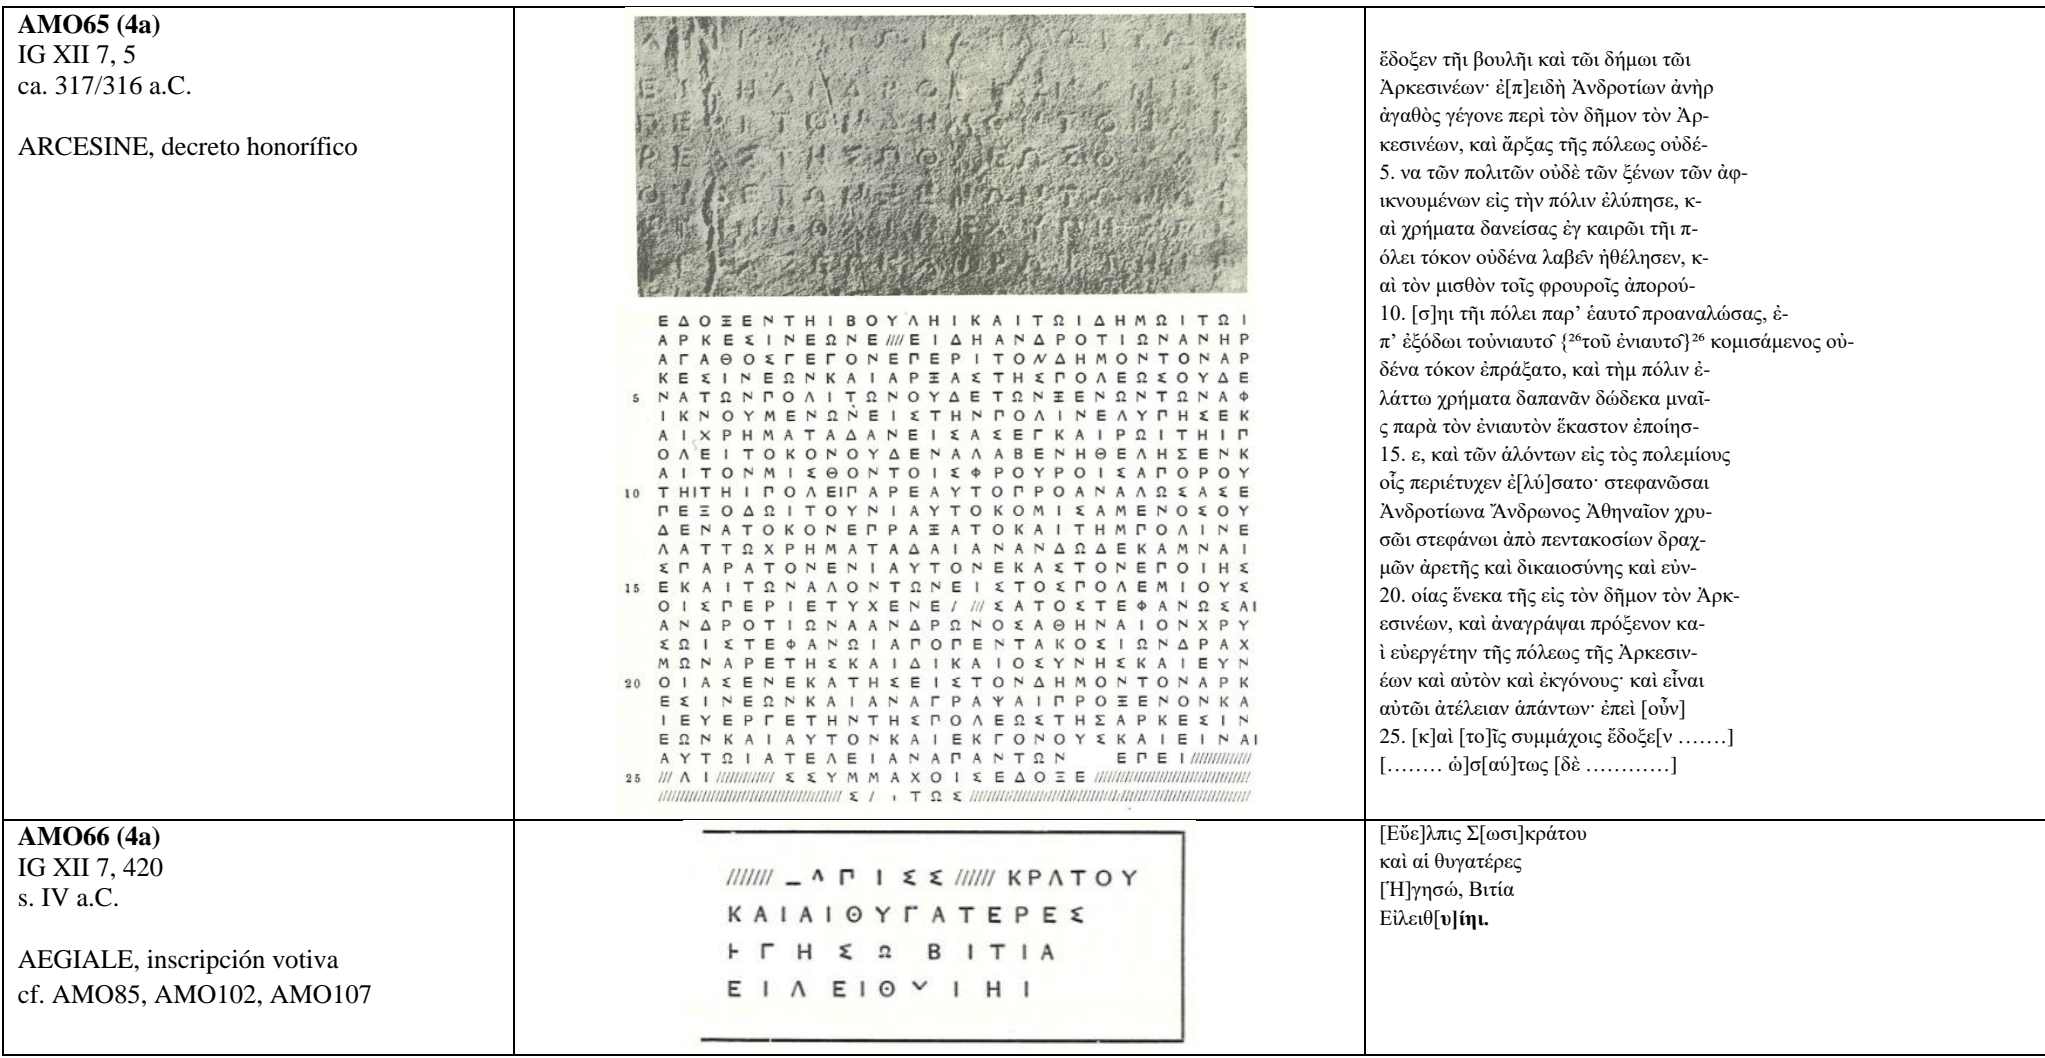 AMO65 (4a)
IG XII 7, 5
ca. 317/316 a.C.
ARCESINE, decreto honorífico
Ε Δ Ο Ξ Ε Ν Τ Η Ι Β Ο Υ Λ Η Ι Κ Α Ι Τ Ω Ι Δ Η Μ Ω Ι Τ Ω Ι
Α Ρ Κ Ε Σ Ι Ν Ε Ω Ν Ε //// Ε Ι Δ Η Α Ν Δ Ρ Ο Τ Ι Ω Ν Α Ν Η Ρ
Α Γ Α Θ Ο Σ Γ Ε Γ Ο Ν Ε Π Ε Ρ Ι Τ Ο Ν Δ Η Μ Ο Ν Τ Ο Ν Α Ρ
Κ Ε Σ Ι Ν Ε Ω Ν Κ Α Ι Α Ρ Ξ Α Σ Τ Η Σ Π Ο Λ Ε Ω Σ Ο Υ Δ Ε
5 Ν Α Τ Ω Ν Π Ο Λ Ι Τ Ω Ν Ο Υ Δ Ε Τ Ω Ν Ξ Ε Ν Ω Ν Τ Ω Ν Α Φ
Ι Κ Ν Ο Υ Μ Ε Ν Ω Ν Ε Ι Σ Τ Η Ν Π Ο Λ Ι Ν Ε Λ Υ Π Η Σ Ε Κ
Α Ι Χ Ρ Η Μ Α Τ Α Δ Α Ν Ε Ι Σ Α Σ Ε Γ Κ Α Ι Ρ Ω Ι Τ Η Ι Π
Ο Λ Ε Ι Τ Ο Κ Ο Ν Ο Υ Δ Ε Ν Α Λ Α Β Ε Ν Η Θ Ε Λ Η Σ Ε Ν Κ
Α Ι Τ Ο Ν Μ Ι Σ Θ Ο Ν Τ Ο Ι Σ Φ Ρ Ο Υ Ρ Ο Ι Σ Α Π Ο Ρ Ο Υ
10 Τ Η Ι Τ Η Ι Π Ο Λ Ε Ι Π Α Ρ Ε Α Υ Τ Ο Π Ρ Ο Α Ν Α Λ Ω Σ Α Σ Ε
Π Ε Ξ Ο Δ Ω Ι Τ Ο Υ Ν Ι Α Υ Τ Ο Κ Ο Μ Ι Σ Α Μ Ε Ν Ο Σ Ο Υ
Δ Ε Ν Α Τ Ο Κ Ο Ν Ε Π Ρ Α Ξ Α Τ Ο Κ Α Ι Τ Η Μ Π Ο Λ Ι Ν Ε
Λ Α Τ Τ Ω Χ Ρ Η Μ Α Τ Α Δ Α Ι Α Ν Α Ν Δ Ω Δ Ε Κ Α Μ Ν Α Ι
Σ Π Α Ρ Α Τ Ο Ν Ε Ν Ι Α Υ Τ Ο Ν Ε Κ Α Σ Τ Ο Ν Ε Π Ο Ι Η Σ
15 Ε Κ Α Ι Τ Ω Ν Α Λ Ο Ν Τ Ω Ν Ε Ι Σ Τ Ο Σ Π Ο Λ Ε Μ Ι Ο Υ Σ
Ο Ι Σ Π Ε Ρ Ι Ε Τ Υ Χ Ε Ν Ε / /// Σ Α Τ Ο Σ Τ Ε Φ Α Ν Ω Σ Α Ι
Α Ν Δ Ρ Ο Τ Ι Ω Ν Α Α Ν Δ Ρ Ω Ν Ο Σ Α Θ Η Ν Α Ι Ο Ν Χ Ρ Υ
Σ Ω Ι Σ Τ Ε Φ Α Ν Ω Ι Α Π Ο Π Ε Ν Τ Α Κ Ο Σ Ι Ω Ν Δ Ρ Α Χ
Μ Ω Ν Α Ρ Ε Τ Η Σ Κ Α Ι Δ Ι Κ Α Ι Ο Σ Υ Ν Η Σ Κ Α Ι Ε Υ Ν
20 Ο Ι Α Σ Ε Ν Ε Κ Α Τ Η Σ Ε Ι Σ Τ Ο Ν Δ Η Μ Ο Ν Τ Ο Ν Α Ρ Κ
Ε Σ Ι Ν Ε Ω Ν Κ Α Ι Α Ν Α Γ Ρ Α Ψ Α Ι Π Ρ Ο Ξ Ε Ν Ο Ν Κ Α
Ι Ε Υ Ε Ρ Γ Ε Τ Η Ν Τ Η Σ Π Ο Λ Ε Ω Σ Τ Η Σ Α Ρ Κ Ε Σ Ι Ν
Ε Ω Ν Κ Α Ι Α Υ Τ Ο Ν Κ Α Ι Ε Κ Γ Ο Ν Ο Υ Σ Κ Α Ι Ε Ι Ν Α Ι
Α Υ Τ Ω Ι Α Τ Ε Λ Ε Ι Α Ν Α Π Α Ν Τ Ω Ν Ε Π Ε Ι ////
25 /// Λ Ι //// Σ Σ Υ Μ Μ Α Χ Ο Ι Σ Ε Δ Ο Ξ Ε ////
//// Σ / ι Τ Ω Σ ////
ἔδοξεν τῆι βουλῆι καὶ τῶι δήμωι τῶι
Ἀρκεσινέων· ἐ[π]ειδὴ Ἀνδροτίων ἀνὴρ
ἀγαθὸς γέγονε περὶ τὸν δῆμον τὸν Ἀρ-
κεσινέων, καὶ ἄρξας τῆς πόλεως οὐδέ-
5. να τῶν πολιτῶν οὐδὲ τῶν ξένων τῶν ἀφ-
ικνουμένων εἰς τὴν πόλιν ἐλύπησε, κ-
αὶ χρήματα δανείσας ἐγ καιρῶι τῆι π-
όλει τόκον οὐδένα λαβε͂ν ἠθέλησεν, κ-
αὶ τὸν μισθὸν τοῖς φρουροῖς ἀπορού-
10. [σ]ηι τῆι πόλει παρ’ ἑαυτο͂ προαναλώσας, ἐ-
π’ ἐξόδωι τοὐνιαυτο͂ {²⁶τοῦ ἐνιαυτο͂}²⁶ κομισάμενος οὐ-
δένα τόκον ἐπράξατο, καὶ τὴμ πόλιν ἐ-
λάττω χρήματα δαπανᾶν δώδεκα μναῖ-
ς παρὰ τὸν ἐνιαυτὸν ἕκαστον ἐποίησ-
15. ε, καὶ τῶν ἁλόντων εἰς τὸς πολεμίους
οἷς περιέτυχεν ἐ[λύ]σατο· στεφανῶσαι
Ἀνδροτίωνα Ἄνδρωνος Ἀθηναῖον χρυ-
σῶι στεφάνωι ἀπὸ πεντακοσίων δραχ-
μῶν ἀρετῆς καὶ δικαιοσύνης καὶ εὐν-
20. οίας ἕνεκα τῆς εἰς τὸν δῆμον τὸν Ἀρκ-
εσινέων, καὶ ἀναγράψαι πρόξενον κα-
ὶ εὐεργέτην τῆς πόλεως τῆς Ἀρκεσιν-
έων καὶ αὐτὸν καὶ ἐκγόνους· καὶ εἶναι
αὐτῶι ἀτέλειαν ἁπάντων· ἐπεὶ [οὖν]
25. [κ]αὶ [το]ῖς συμμάχοις ἔδοξε[ν .......]
[........ ὡ]σ[αύ]τως [δὲ ............]
AMO66 (4a)
IG XII 7, 420
s. IV a.C.
AEGIALE, inscripción votiva
cf. AMO85, AMO102, AMO107
/////// _ ^ Π Ι Σ Σ ////// Κ Ρ Λ Τ Ο Υ
Κ Α Ι Α Ι Θ Υ Γ Α Τ Ε Ρ Ε Σ
Ͱ Γ Η Σ Ω Β Ι Τ Ι Α
Ε Ι Λ Ε Ι Θ Υ Ι Η Ι
[Εὔε]λπις Σ[ωσι]κράτου
καὶ αἱ θυγατέρες
[Ἡ]γησώ, Βιτία
Εἰλειθ[υ]ίηι.